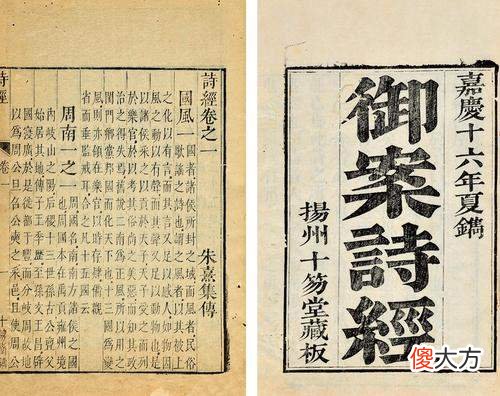 嘉慶十六年夏鐫
御案詩經
揚州十笏堂藏板
詩經卷之一
朱熹集傳
國風一 國者諸侯所封之域而風者民俗
歌謠之詩也謂之風者以其被上
之化以有言而其言又足以感人如物因
風之動以有聲而其聲又足以動物也是
以諸侯采之以貢於天子天子受之而列
於樂官於以考其俗尚之美惡而知其政
治之得失焉舊說二南為正風所以用之
閨門鄉黨邦國而化天下也十三國為變
風則亦領在樂官以時存肄備觀
省而垂監戒耳合之凡十五國云
周南一之一 周國名南南方諸侯之國
也周國本在禹貢雍州境
內岐山之陽后稷十三世孫古公亶父
始居其地傳子王季歷至孫文王昌辟
國寖廣於是徙都于豐而分岐周故地
以為周公旦召公奭之采邑且使周公
詩經
卷一
傻大方